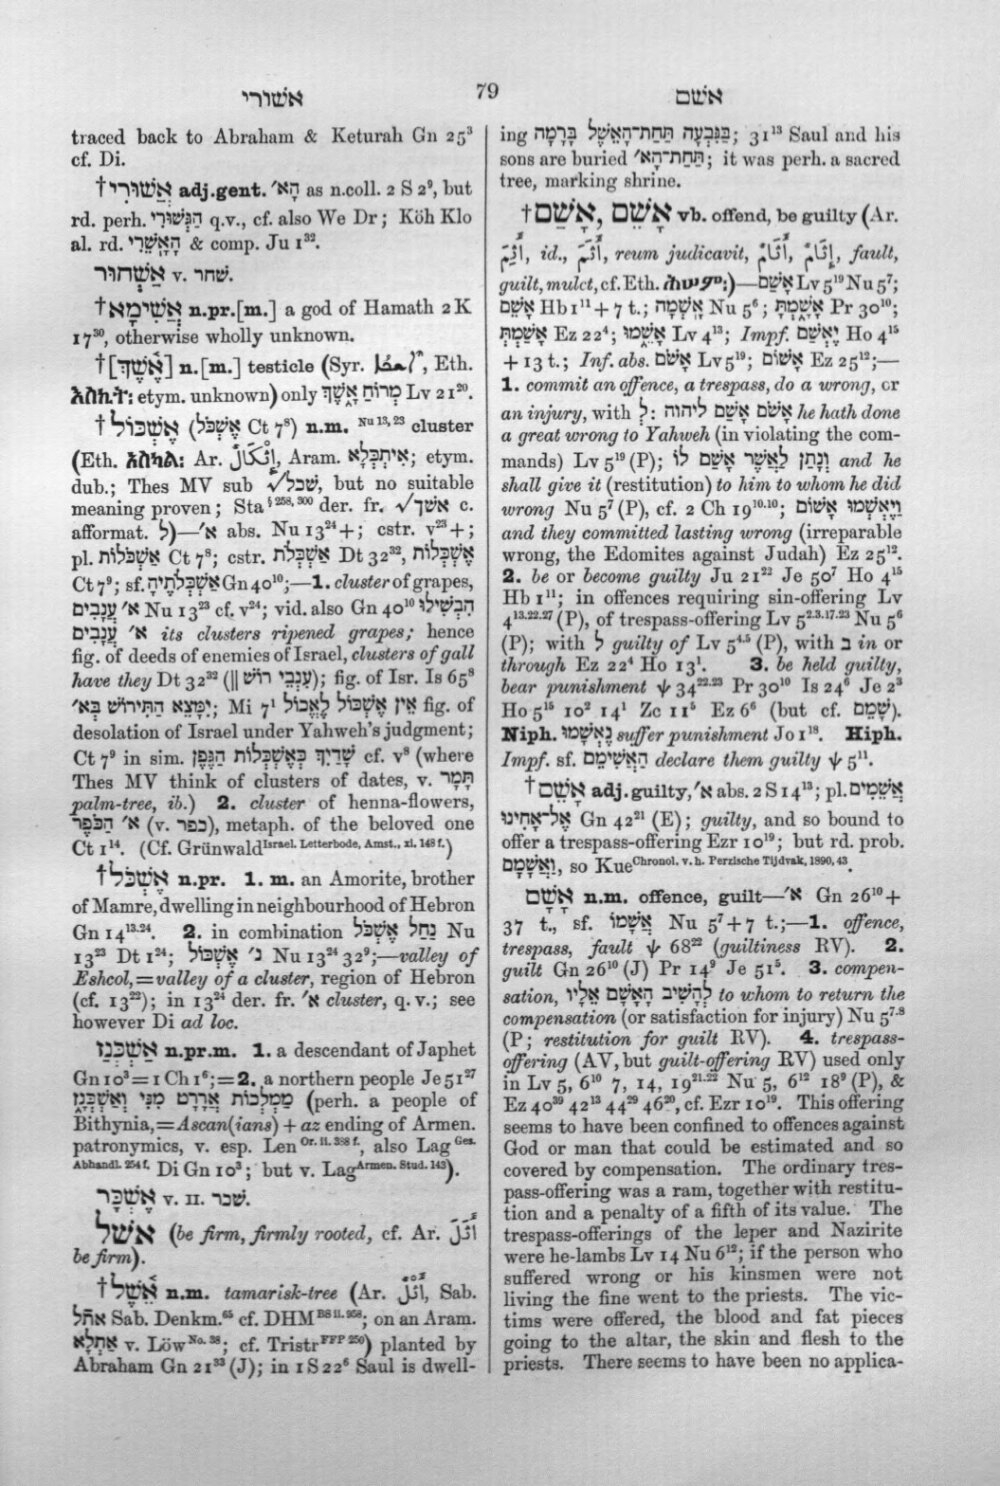 אשורי
79
אשם
traced back to Abraham & Keturah Gn 25³
cf. Di.
†אֲשׁוּרִי adj.gent. הָא׳ as n.coll. 2 S 2⁹, but
rd. perh. הַגְּשׁוּרִי q.v., cf. also We Dr; Köh Klo
al. rd. הָאָשֵׁרִי & comp. Ju 1³².
אַשְׁחוּר v. שׁחר.
†אֲשִׁימָא n.pr.[m.] a god of Hamath 2 K
17³⁰, otherwise wholly unknown.
†[אֶשֶׁךְ] n.[m.] testicle (Syr. Eth.
etym. unknown) only מְרוֹחַ אָשֶׁךְ Lv 21²⁰.
†אֶשְׁכּוֹל (אֶשְׁכֹּל Ct 7⁸) n.m. Nu 13, 23 cluster
(Eth. አስካል: Ar. إِثْكَالٌ, Aram. אִיתְכְּלָא; etym.
dub.; Thes MV sub √שׁכל, but no suitable
meaning proven; Sta § 258, 300 der. fr. √אשׁך c.
afformat. ל)—א׳ abs. Nu 13²⁴+; cstr. v²³+;
pl. אַשְׁכֹּלוֹת Ct 7⁸; cstr. אַשְׁכְּלֹת Dt 32³², אֶשְׁכְּלוֹת
Ct 7⁹; sf. אַשְׁכְּלֹתֶיהָ Gn 40¹⁰;—1. cluster of grapes,
א׳ עֲנָבִים Nu 13²³ cf. v²⁴; vid. also Gn 40¹⁰ הִבְשִׁילוּ
א׳ עֲנָבִים its clusters ripened grapes; hence
fig. of deeds of enemies of Israel, clusters of gall
have they Dt 32³² (‖ עִנְּבֵי רוֹשׁ); fig. of Isr. Is 65⁸
יִמָּצֵא הַתִּירוֹשׁ בָּא׳; Mi 7¹ אֵין אֶשְׁכּוֹל לֶאֱכוֹל fig. of
desolation of Israel under Yahweh's judgment;
Ct 7⁹ in sim. שָׁדַיִךְ כְּאֶשְׁכְּלוֹת הַגֶּפֶן cf. v⁸ (where
Thes MV think of clusters of dates, v. תָּמָר
palm-tree, ib.) 2. cluster of henna-flowers,
א׳ הַכֹּפֶר (v. כפר), metaph. of the beloved one
Ct 1¹⁴. (Cf. Grünwald Israel. Letterbode, Amst., xi. 148 f.)
†אֶשְׁכֹּל n.pr. 1. m. an Amorite, brother
of Mamre, dwelling in neighbourhood of Hebron
Gn 14¹³·²⁴. 2. in combination נַחַל אֶשְׁכֹּל Nu
13²³ Dt 1²⁴; נ׳ אֶשְׁכּוֹל Nu 13²⁴ 32⁹;—valley of
Eshcol,=valley of a cluster, region of Hebron
(cf. 13²²); in 13²⁴ der. fr. א׳ cluster, q.v.; see
however Di ad loc.
אַשְׁכְּנַז n.pr.m. 1. a descendant of Japhet
Gn 10³=1 Ch 1⁶;=2. a northern people Je 51²⁷
מַמְלְכוֹת אֲרָרַט מִנִּי וְאַשְׁכְּנָז (perh. a people of
Bithynia,=Ascan(ians)+az ending of Armen.
patronymics, v. esp. Len Or. ii. 388 f., also Lag Ges.
Abhandl. 254 f. Di Gn 10³; but v. Lag Armen. Stud. 143).
אֶשְׁכָּר v. II. שׂכר.
אשׁל (be firm, firmly rooted, cf. Ar. أَثَلَ
be firm).
†אֵשֶׁל n.m. tamarisk-tree (Ar. أَثْلٌ, Sab.
אתֿל Sab. Denkm.⁶⁵ cf. DHM BS ii. 968; on an Aram.
אַתְלָא v. Löw No. 38; cf. Tristr FFP 250) planted by
Abraham Gn 21³³ (J); in 1 S 22⁶ Saul is dwell-
ing בַּגִּבְעָה תַּחַת־הָאֵשֶׁל בָּרָמָה; 31¹³ Saul and his
sons are buried תַּחַת־הָא׳; it was perh. a sacred
tree, marking shrine.
†אָשֵׁם, אָשַׁם vb. offend, be guilty (Ar.
أَثِمَ, id., أَثَّمَ, reum judicavit, إِثْمٌ, أَثَامٌ, إِثَامٌ, fault,
guilt, mulct, cf. Eth. )—אָשַׁם Lv 5¹⁹ Nu 5⁷;
אָשֵׁם Hb 1¹¹+7 t.; אָֽשְׁמָה Nu 5⁶; אָשָׁמְתָּ Pr 30¹⁰;
אָשַׁמְתְּ Ez 22⁴; אָשֵׁמוּ Lv 4¹³; Impf. יֶאְשַׁם Ho 4¹⁵
+13 t.; Inf. abs. אָשֹׁם Lv 5¹⁹; אָשׁוֹם Ez 25¹²;—
1. commit an offence, a trespass, do a wrong, or
an injury, with לְ: אָשֹׁם אָשַׁם ליהוה he hath done
a great wrong to Yahweh (in violating the com-
mands) Lv 5¹⁹ (P); וְנָתַן לַאֲשֶׁר אָשַׁם לוֹ and he
shall give it (restitution) to him to whom he did
wrong Nu 5⁷ (P), cf. 2 Ch 19¹⁰·¹⁰; וַיֶּאְשְׁמוּ אָשׁוֹם
and they committed lasting wrong (irreparable
wrong, the Edomites against Judah) Ez 25¹².
2. be or become guilty Ju 21²² Je 50⁷ Ho 4¹⁵
Hb 1¹¹; in offences requiring sin-offering Lv
4¹³·²²·²⁷ (P), of trespass-offering Lv 5²·³·¹⁷·²³ Nu 5⁶
(P); with ל guilty of Lv 5⁴·⁵ (P), with ב in or
through Ez 22⁴ Ho 13¹. 3. be held guilty,
bear punishment ψ 34²²·²³ Pr 30¹⁰ Is 24⁶ Je 2³
Ho 5¹⁵ 10² 14¹ Zc 11⁵ Ez 6⁶ (but cf. שָׁמֵם).
Niph. נֶאְשָׁמוּ suffer punishment Jo 1¹⁸. Hiph.
Impf. sf. הַאֲשִׁימֵם declare them guilty ψ 5¹¹.
†אָשֵׁם adj. guilty, א׳ abs. 2 S 14¹³; pl. אֲשֵׁמִים
אֶל־אָחִינוּ Gn 42²¹ (E); guilty, and so bound to
offer a trespass-offering Ezr 10¹⁹; but rd. prob.
וַאֲשָׁמָם, so Kue Chronol. v. h. Perzische Tijdvak, 1890, 43.
אָשָׁם n.m. offence, guilt—א׳ Gn 26¹⁰+
37 t., sf. אֲשָׁמוֹ Nu 5⁷+7 t.;—1. offence,
trespass, fault ψ 68²² (guiltiness RV). 2.
guilt Gn 26¹⁰ (J) Pr 14⁹ Je 51⁵. 3. compen-
sation, לְהָשִׁיב הָאָשָׁם אֵלָיו to whom to return the
compensation (or satisfaction for injury) Nu 5⁷·⁸
(P; restitution for guilt RV). 4. trespass-
offering (AV, but guilt-offering RV) used only
in Lv 5, 6¹⁰ 7, 14, 19²¹·²² Nu 5, 6¹² 18⁹ (P), &
Ez 40³⁹ 42¹³ 44²⁹ 46²⁰, cf. Ezr 10¹⁹. This offering
seems to have been confined to offences against
God or man that could be estimated and so
covered by compensation. The ordinary tres-
pass-offering was a ram, together with restitu-
tion and a penalty of a fifth of its value. The
trespass-offerings of the leper and Nazirite
were he-lambs Lv 14 Nu 6¹²; if the person who
suffered wrong or his kinsmen were not
living the fine went to the priests. The vic-
tims were offered, the blood and fat pieces
going to the altar, the skin and flesh to the
priests. There seems to have been no applica-